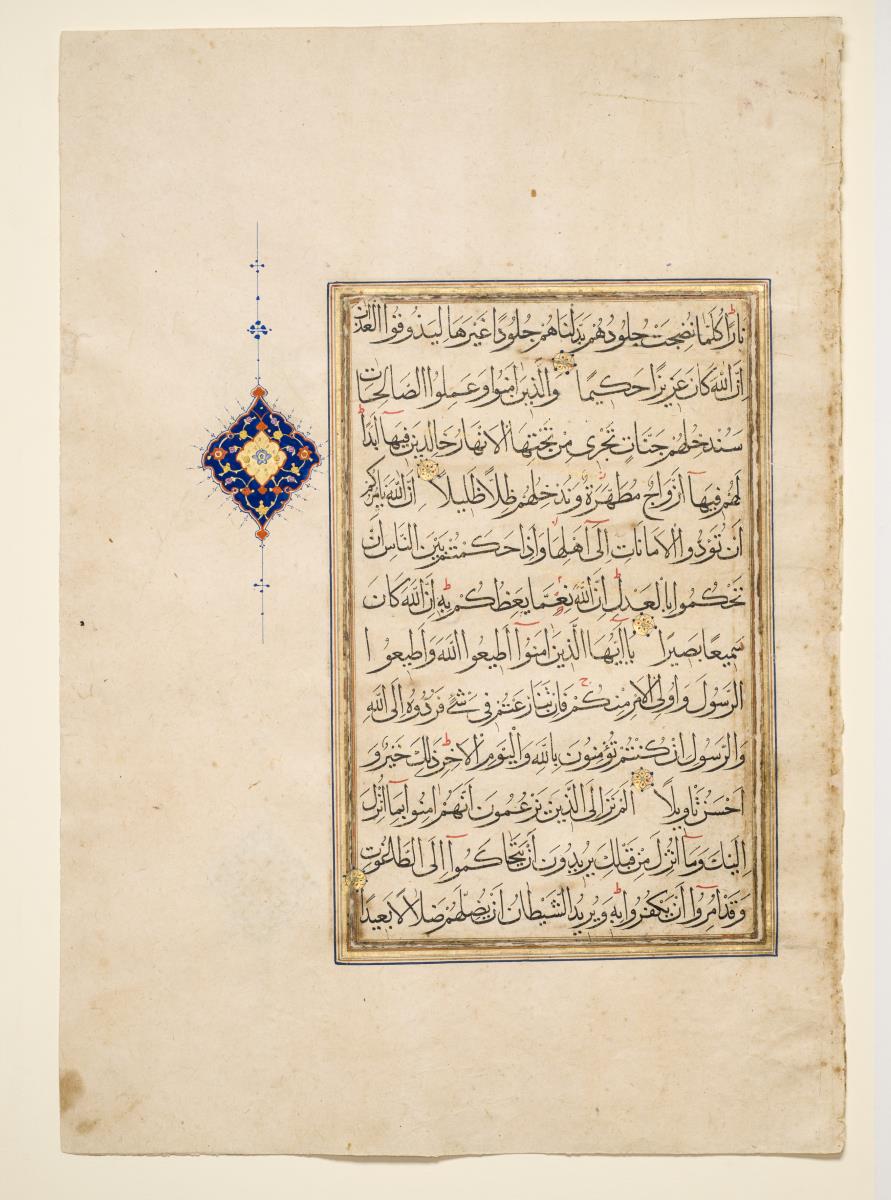 نَارًا كُلَّمَا نَضِجَتْ جُلُودُهُمْ بَدَّلْنَاهُمْ جُلُودًا غَيْرَهَا لِيَذُوقُوا الْعَذَابَ
إِنَّ اللَّهَ كَانَ عَزِيزًا حَكِيمًا وَالَّذِينَ آمَنُوا وَعَمِلُوا الصَّالِحَاتِ
سَنُدْخِلُهُمْ جَنَّاتٍ تَجْرِي مِنْ تَحْتِهَا الْأَنْهَارُ خَالِدِينَ فِيهَا أَبَدًا
لَهُمْ فِيهَا أَزْوَاجٌ مُطَهَّرَةٌ وَنُدْخِلُهُمْ ظِلًّا ظَلِيلًا إِنَّ اللَّهَ يَأْمُرُكُمْ
أَنْ تُؤَدُّوا الْأَمَانَاتِ إِلَى أَهْلِهَا وَإِذَا حَكَمْتُمْ بَيْنَ النَّاسِ أَنْ
تَحْكُمُوا بِالْعَدْلِ إِنَّ اللَّهَ نِعِمَّا يَعِظُكُمْ بِهِ إِنَّ اللَّهَ كَانَ
سَمِيعًا بَصِيرًا يَا أَيُّهَا الَّذِينَ آمَنُوا أَطِيعُوا اللَّهَ وَأَطِيعُوا
الرَّسُولَ وَأُولِي الْأَمْرِ مِنْكُمْ فَإِنْ تَنَازَعْتُمْ فِي شَيْءٍ فَرُدُّوهُ إِلَى اللَّهِ
وَالرَّسُولِ إِنْ كُنْتُمْ تُؤْمِنُونَ بِاللَّهِ وَالْيَوْمِ الْآخِرِ ذَلِكَ خَيْرٌ وَ
أَحْسَنُ تَأْوِيلًا أَلَمْ تَرَ إِلَى الَّذِينَ يَزْعُمُونَ أَنَّهُمْ آمَنُوا بِمَا أُنْزِلَ
إِلَيْكَ وَمَا أُنْزِلَ مِنْ قَبْلِكَ يُرِيدُونَ أَنْ يَتَحَاكَمُوا إِلَى الطَّاغُوتِ
وَقَدْ أُمِرُوا أَنْ يَكْفُرُوا بِهِ وَيُرِيدُ الشَّيْطَانُ أَنْ يُضِلَّهُمْ ضَلَالًا بَعِيدًا